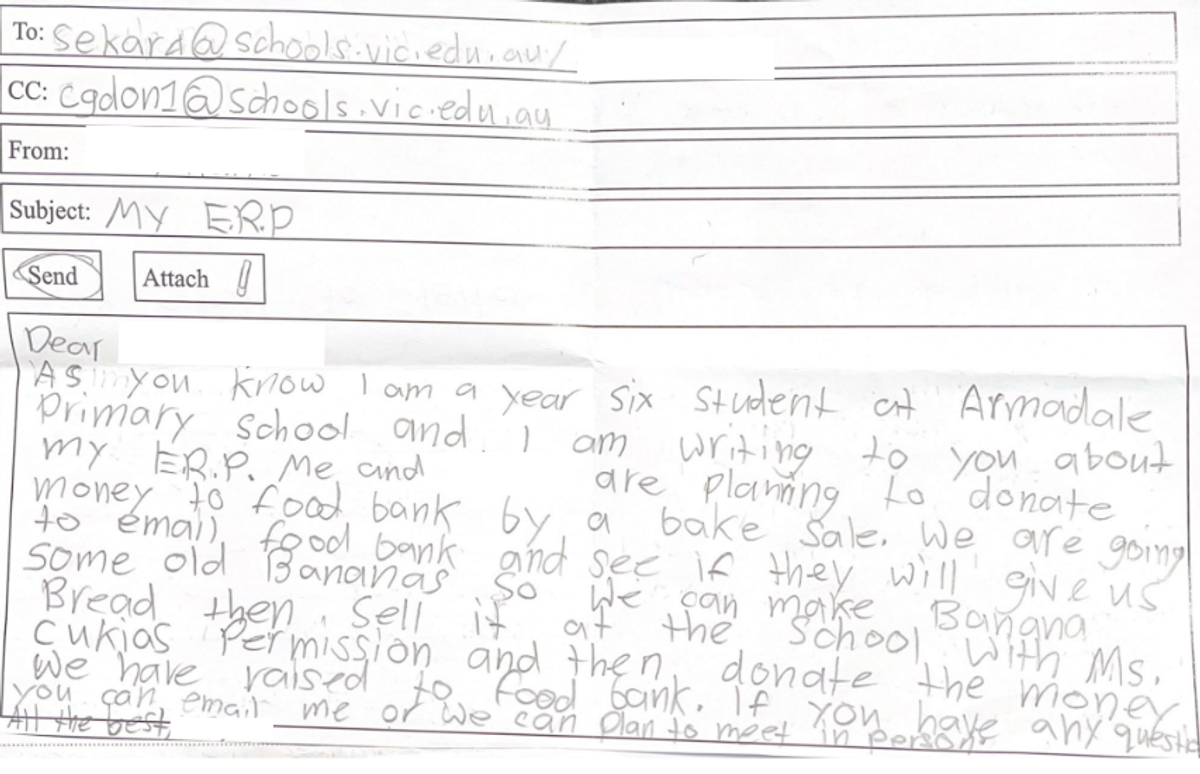 To: sekard@schools.vic.edu.au/
CC: cgdon1@schools.vic.edu.au
From:
Subject: MY E.R.P
Send Attach
Dear
As you know I am a year six student at Armadale
Primary School and I am writing to you about
my E.R.P. Me and are planning to donate
money to food bank by a bake sale. We are going
to email food bank and see if they will give us
some old Bananas so we can make Banana
Bread then sell it at the school with Ms.
Cukias Permission and then donate the money
we have raised to food bank. If you have any questio
you can email me or we can plan to meet in person
All the best,